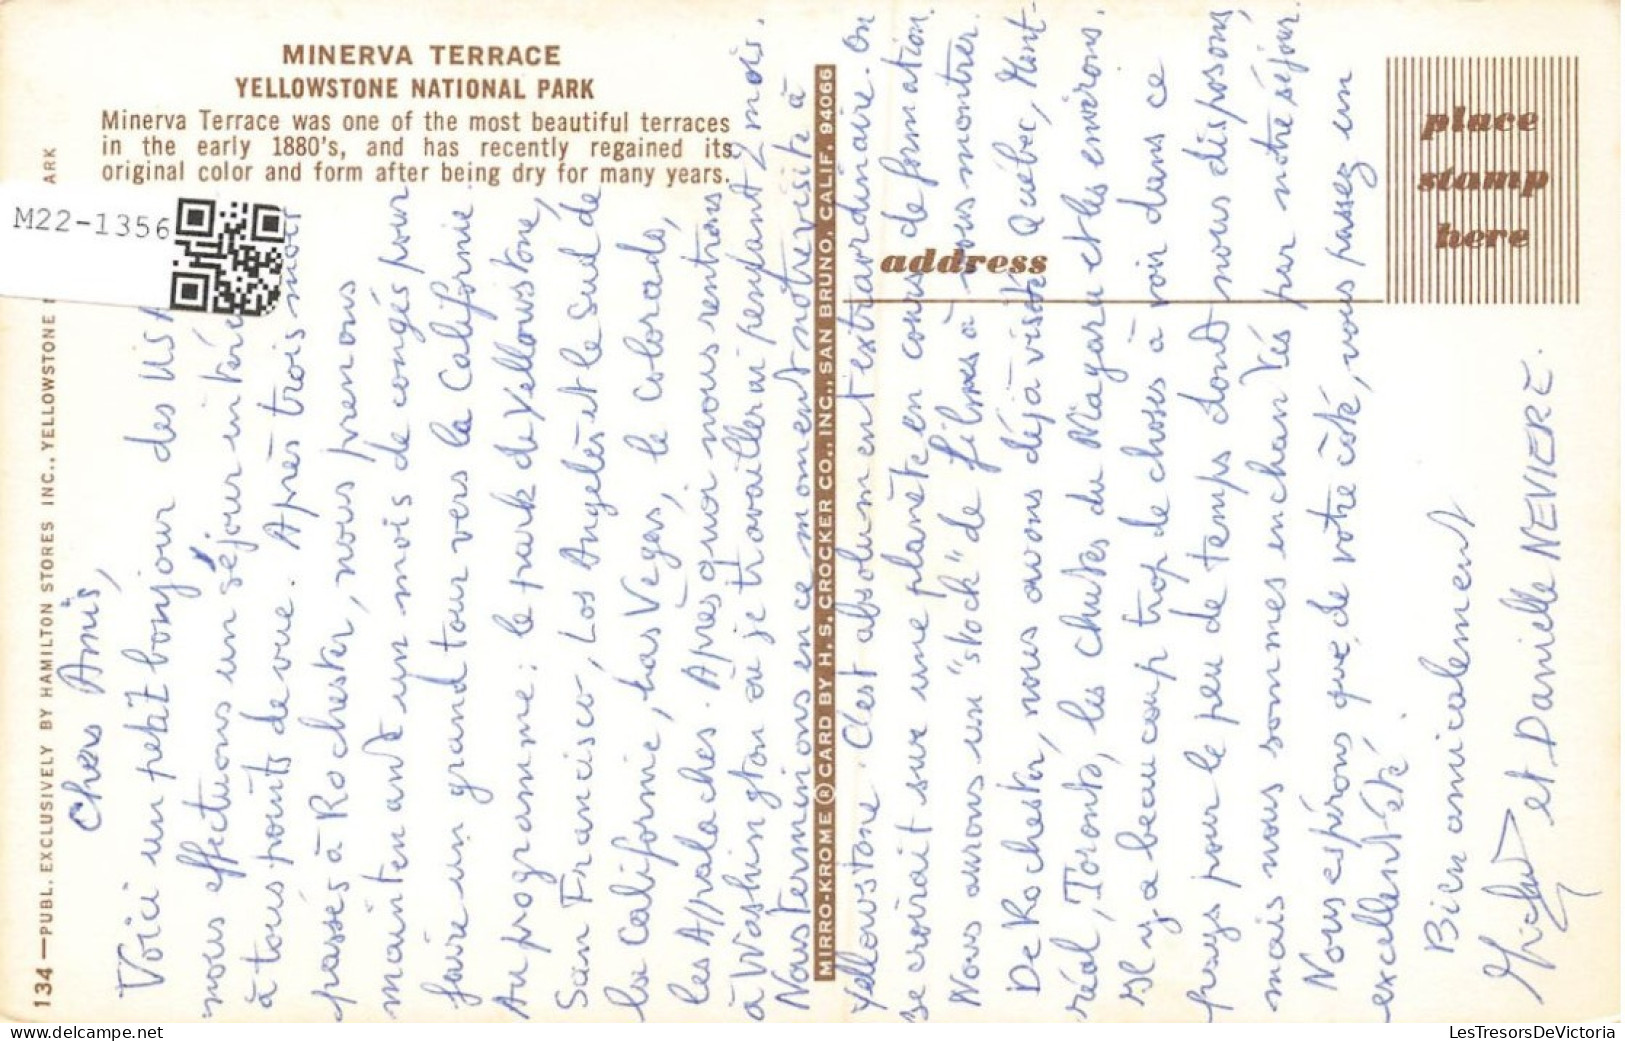 MINERVA TERRACE
YELLOWSTONE NATIONAL PARK
Minerva Terrace was one of the most beautiful terraces
in the early 1880's, and has recently regained its
original color and form after being dry for many years.
M22-1356
134—PUBL. EXCLUSIVELY BY HAMILTON STORES INC., YELLOWSTONE ARK
Chers Amis,
Voici un petit bonjour des US
nous effectuons un séjour
à tous points de vue. Après trois mois
passés à Rochester, nous prenons
maintenant un mois de congés pour
faire un grand tour vers la Californie
Au programme : le park de Yellowstone,
San Francisco, Los Angeles et le Sud de
la Californie, Las Vegas, le Colorado,
les Appalaches. Après quoi nous rentrons
à Washington où je travaillerai pendant 2 mois.
Nous terminons en ce moment notre visite à
MIRRO-KROME ® CARD BY H. S. CROCKER CO., INC., SAN BRUNO, CALIF. 94066
Yellowstone. C'est absolument extraordinaire. On
se croirait sur une planète en cours de formation.
Nous aurons un "stock" de films à vous montrer.
De Rochester, nous avons déjà visité Québec, Mont-
réal, Toronto, les chutes du Niagara et les environs.
Il y a beaucoup trop de choses à voir dans ce
pays pour le peu de temps dont nous disposons,
mais nous sommes enchantés par notre séjour.
Nous espérons que, de votre côté, vous passez un
excellent été.
Bien amicalement
et Danielle NEVIERE.
place
stamp
here
address
LesTresorsDeVictoria
www.delcampe.net